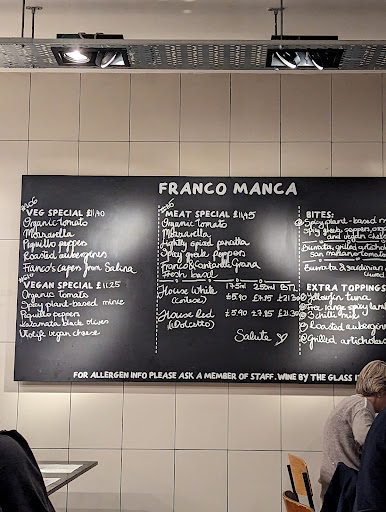 FRANCO MANCA
VEG SPECIAL £11,40
Organic tomato
Mozzarella
Piquillo peppers
Roasted aubergines
Franco's capers from Salina
VEGAN SPECIAL £11.25
Organic tomato
Spicy plant-based mince
Piquillo peppers
Kalamata black olives
Violife vegan cheese
MEAT SPECIAL £11,45
Organic tomato
Mozzarella
Lightly spiced pancetta
Spicy greek peppers
Franco's Grana
Fresh basil
175ml 250ml BTL
House White £5.90 £7.95 £21.30
House Red £5.90 £7.95 £21.30
Salute
BITES:
Spicy plant-based m
and vegan chee
Burrata, grilled articho
san marzano tomato
Burrata & sardinian
EXTRA TOPPINGS
Yellowfin tuna
Free range spicy lam
Roasted aubergine
Grilled artichoke
FOR ALLERGEN INFO PLEASE ASK A MEMBER OF STAFF. WINE BY THE GLASS